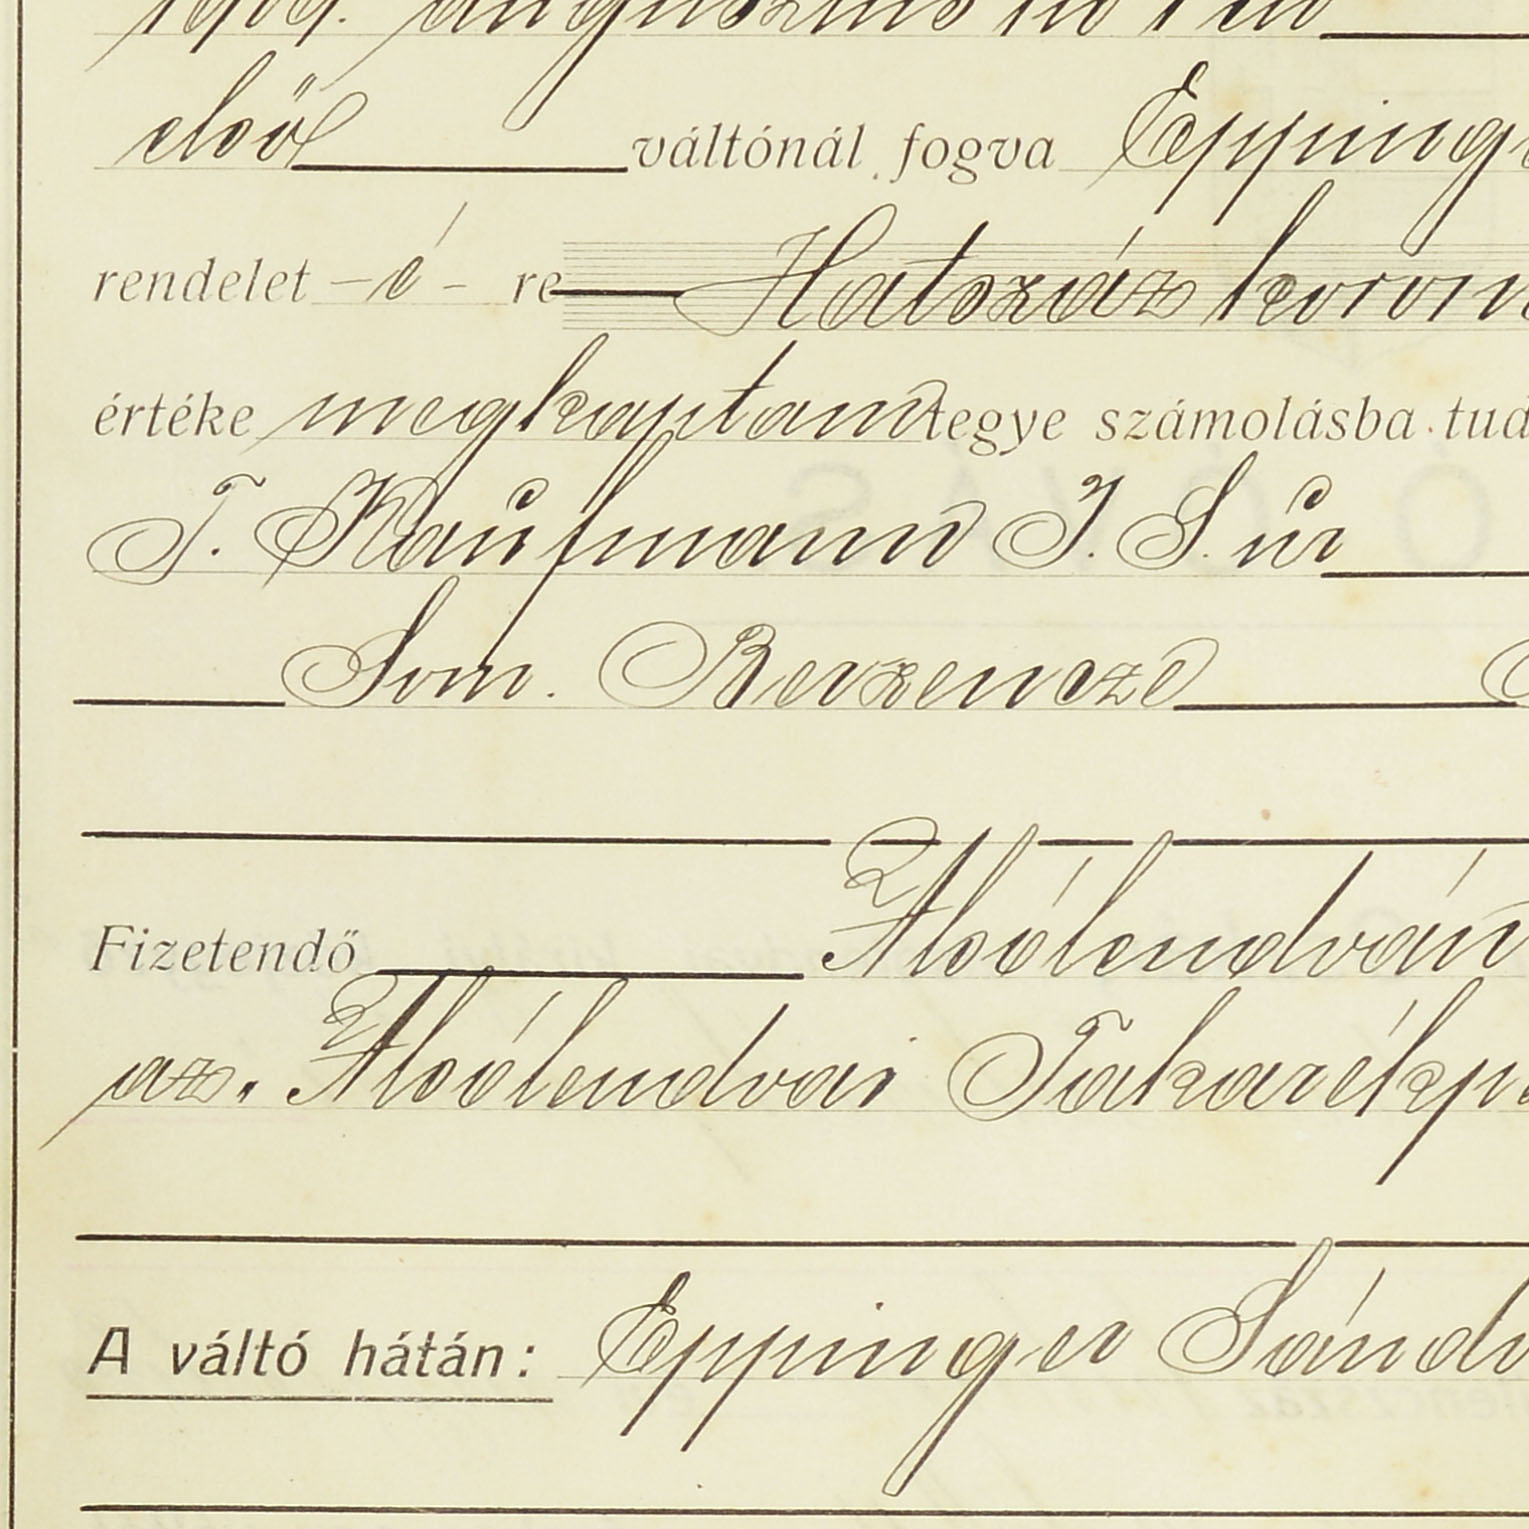 1909. augusztus hó 1 én
első váltónál fogva Eppinge
rendelet - é - re Hatszáz koron
értéke megkaptam tegye számolásba tud
T. Kaufmann J. S. úr
Som. Berzencze
Fizetendő Alsólendván
az. Alsólendvai Takarékp
A váltó hátán: Eppinger Sánd